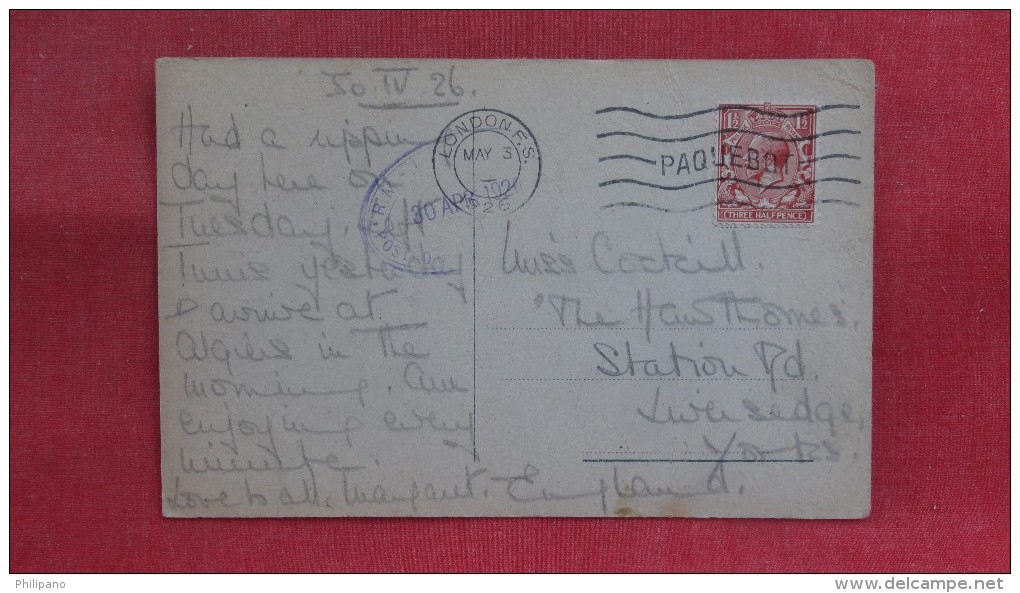 30 IV 26.
Had a rippin
day here on
Tuesday, left
Tunis yesterday
& arrive at
Algiers in the
morning. Am
enjoying every
minute.
Love to all, Margaret.
R.M.
30 APR 192
LONDON. F.S.
MAY 3
26
PAQUEBOT
1½ 1½
(THREE HALFPENCE)
Miss Cockill.
"The Hawthornes".
Station Rd.
Liversedge,
Yorks.
England.
Philipano
www.delcampe.net